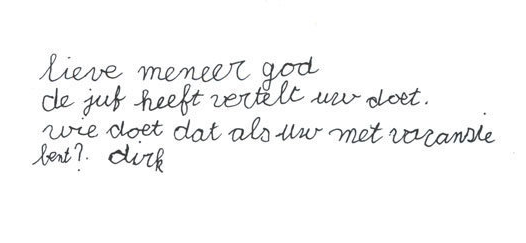 lieve meneer god
de juf heeft vertelt uw doet.
wie doet dat als uw met vacansie
bent?. dirk